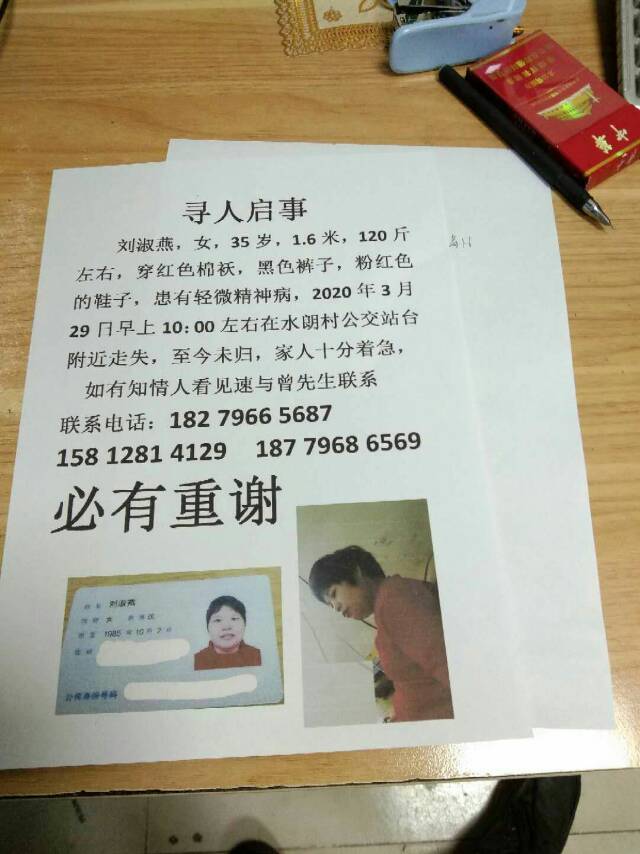 寻人启事
刘淑燕，女，35岁，1.6米，120斤
左右，穿红色棉袄，黑色裤子，粉红色
的鞋子，患有轻微精神病，2020年3月
29日早上10:00左右在水朗村公交站台
附近走失，至今未归，家人十分着急，
如有知情人看见速与曾先生联系
联系电话：182 7966 5687
158 1281 4129 187 7968 6569
必有重谢
姓名 刘淑燕
性别 女 民族 汉
出生 1985年10月2日
住址
公民身份号码
中华